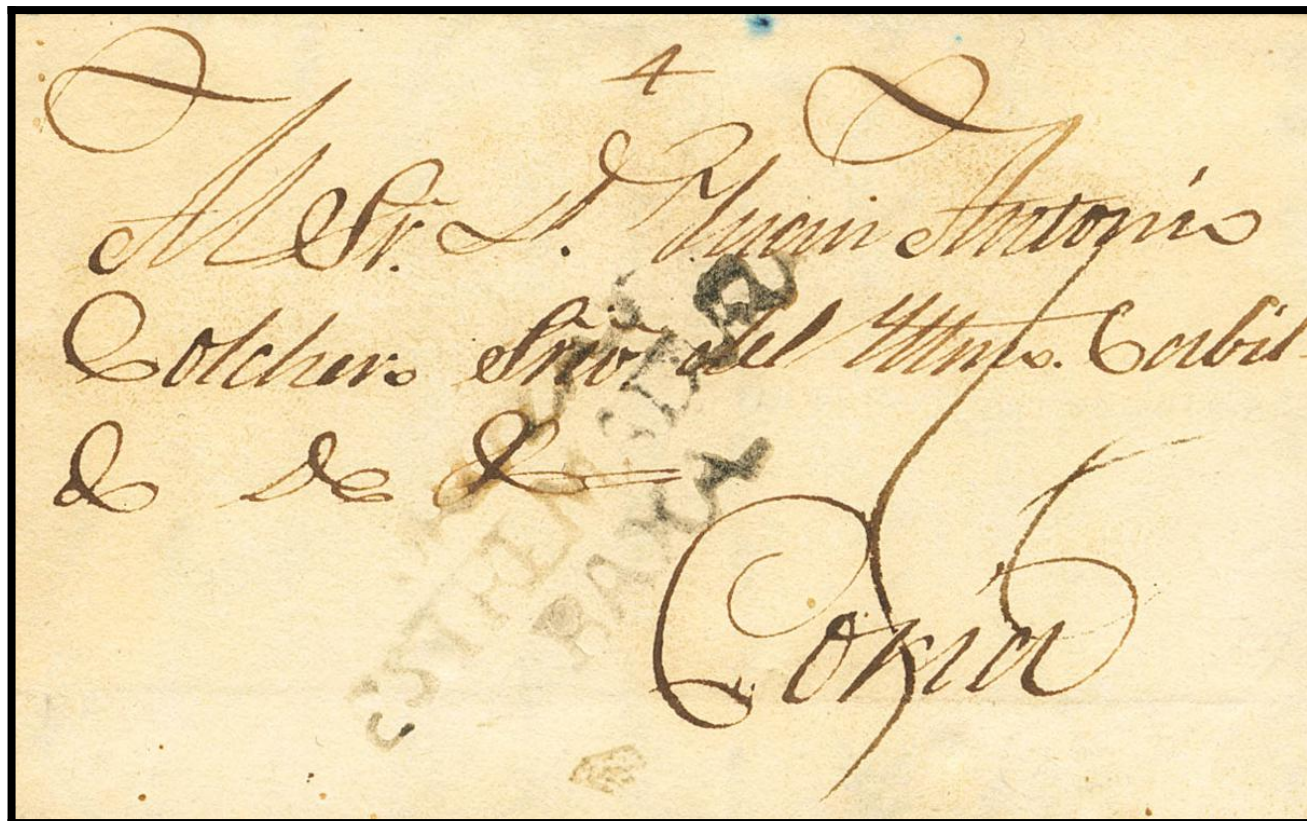 4
Al Sr. D. Juan Antonio
Colchero Srio. del Yltmo. Cabil-
do &c &c
Coria
ESTREMADURA
BAXA